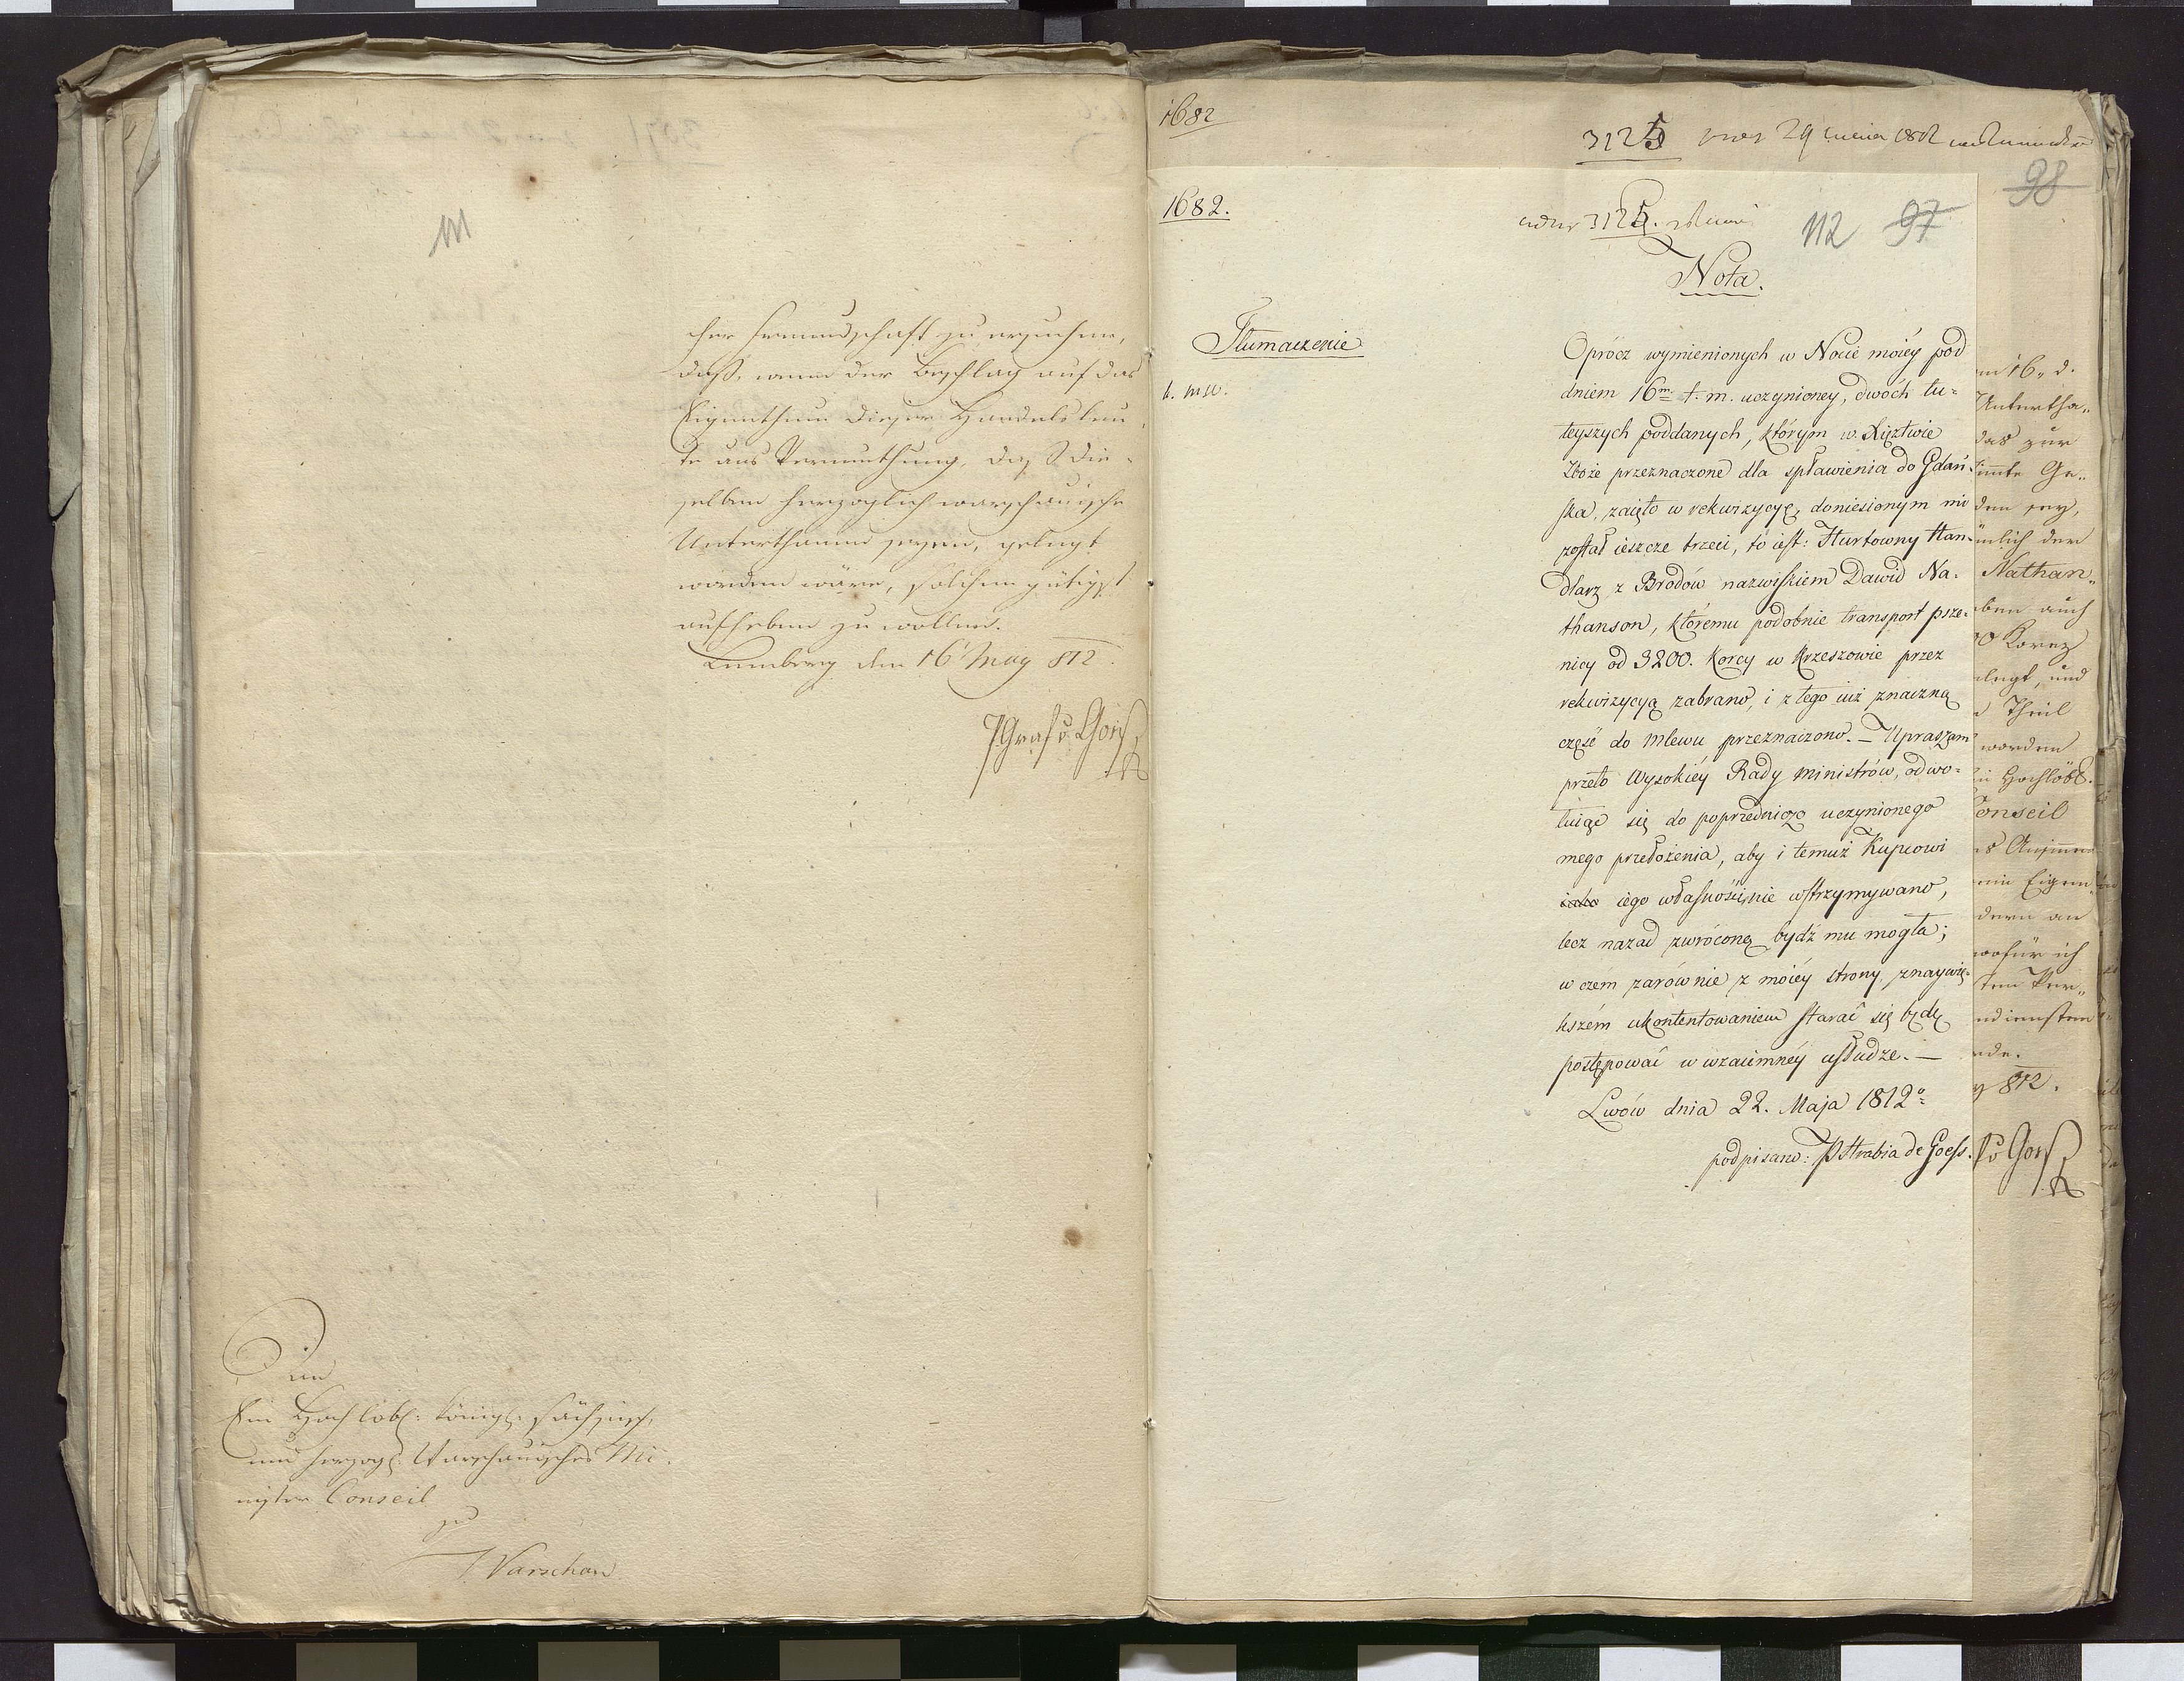 111
cher Freundschaft zu ersuchen,
daß, wenn der Beschlag auf das
Eigenthum dieser Handelsleu-
te aus Vermuthung, daß die-
selben herzoglich warschauische
Unterthanen seyen, gelegt
worden wäre, solchen gütigst
aufheben zu wollen.
Lemberg den 16 May 812.
P Graf v Goeß
An
Ein Hochlöbl: königl: sächsisch,
und herzogl: Warschauisches Mi-
nister Conseil
zu
Warschau
1682
3125 29 1812
98
1682.
3125.
112 97
Nota.
Tłumaczenie
Oprócz wymienionych w Nocie moiéy pod
dniem 16m t. m. uczynioney, dwóch tu-
teyszych poddanych, którym w Xięztwie
Zboże przeznaczone dla spławienia do Gdań-
ska, zaięto w rekwizycyę, doniesionym mi
został ieszcze trzeci, to iest: Hurtowny Han-
dlarz z Brodów nazwiskiem Dawid Na-
thanson, któremu podobnie transport psze-
nicy od 3200. Korcy w Krzeszowie przez
rekwizycyą zabrano, i z tego iuż znaczną
część do mlewu przeznaczono. — Upraszam
przeto Wysokiéy Rady Ministrów, odwo-
łuiąc się do poprzedniczo uczynionego
mego przełożenia, aby i temuż Kupcowi
iego własności nie wstrzymywano,
lecz nazad zwróconą bydź mu mogła;
w czém zarównie z moiéy strony, z naywię-
kszém ukontentowaniem starać się będę
postępować w wzaiemnéy usłudze. —
Lwów dnia 22. Maja 1812o
podpisano: P Hrabia de Goess.
m 16. d.
Untertha-
das zur
immte Ge-
den sey,
mlich der
Nathan-
ben auch
00 Korez
legt, und
Theil
worden
Hochlöbl.
Conseil
s Ansinnen
ein Eigen-
dern an
wofür ich
sten Ver-
nd
rde.
y 812.
v Goeß